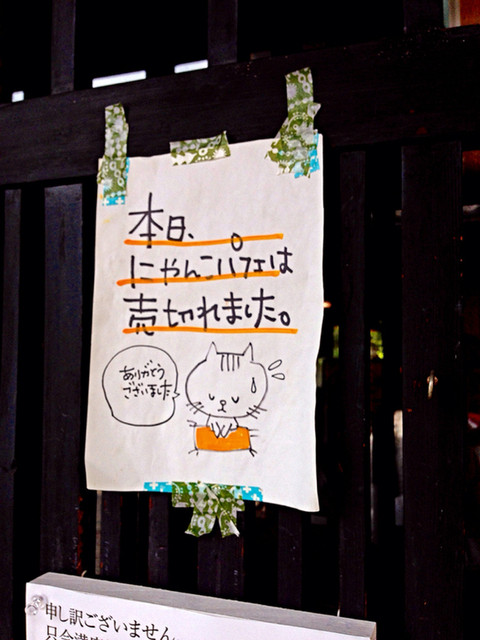 本日、
にゃんこパフェは
売切れました。
ありがとう
ございました
申し訳ございません。
只今満